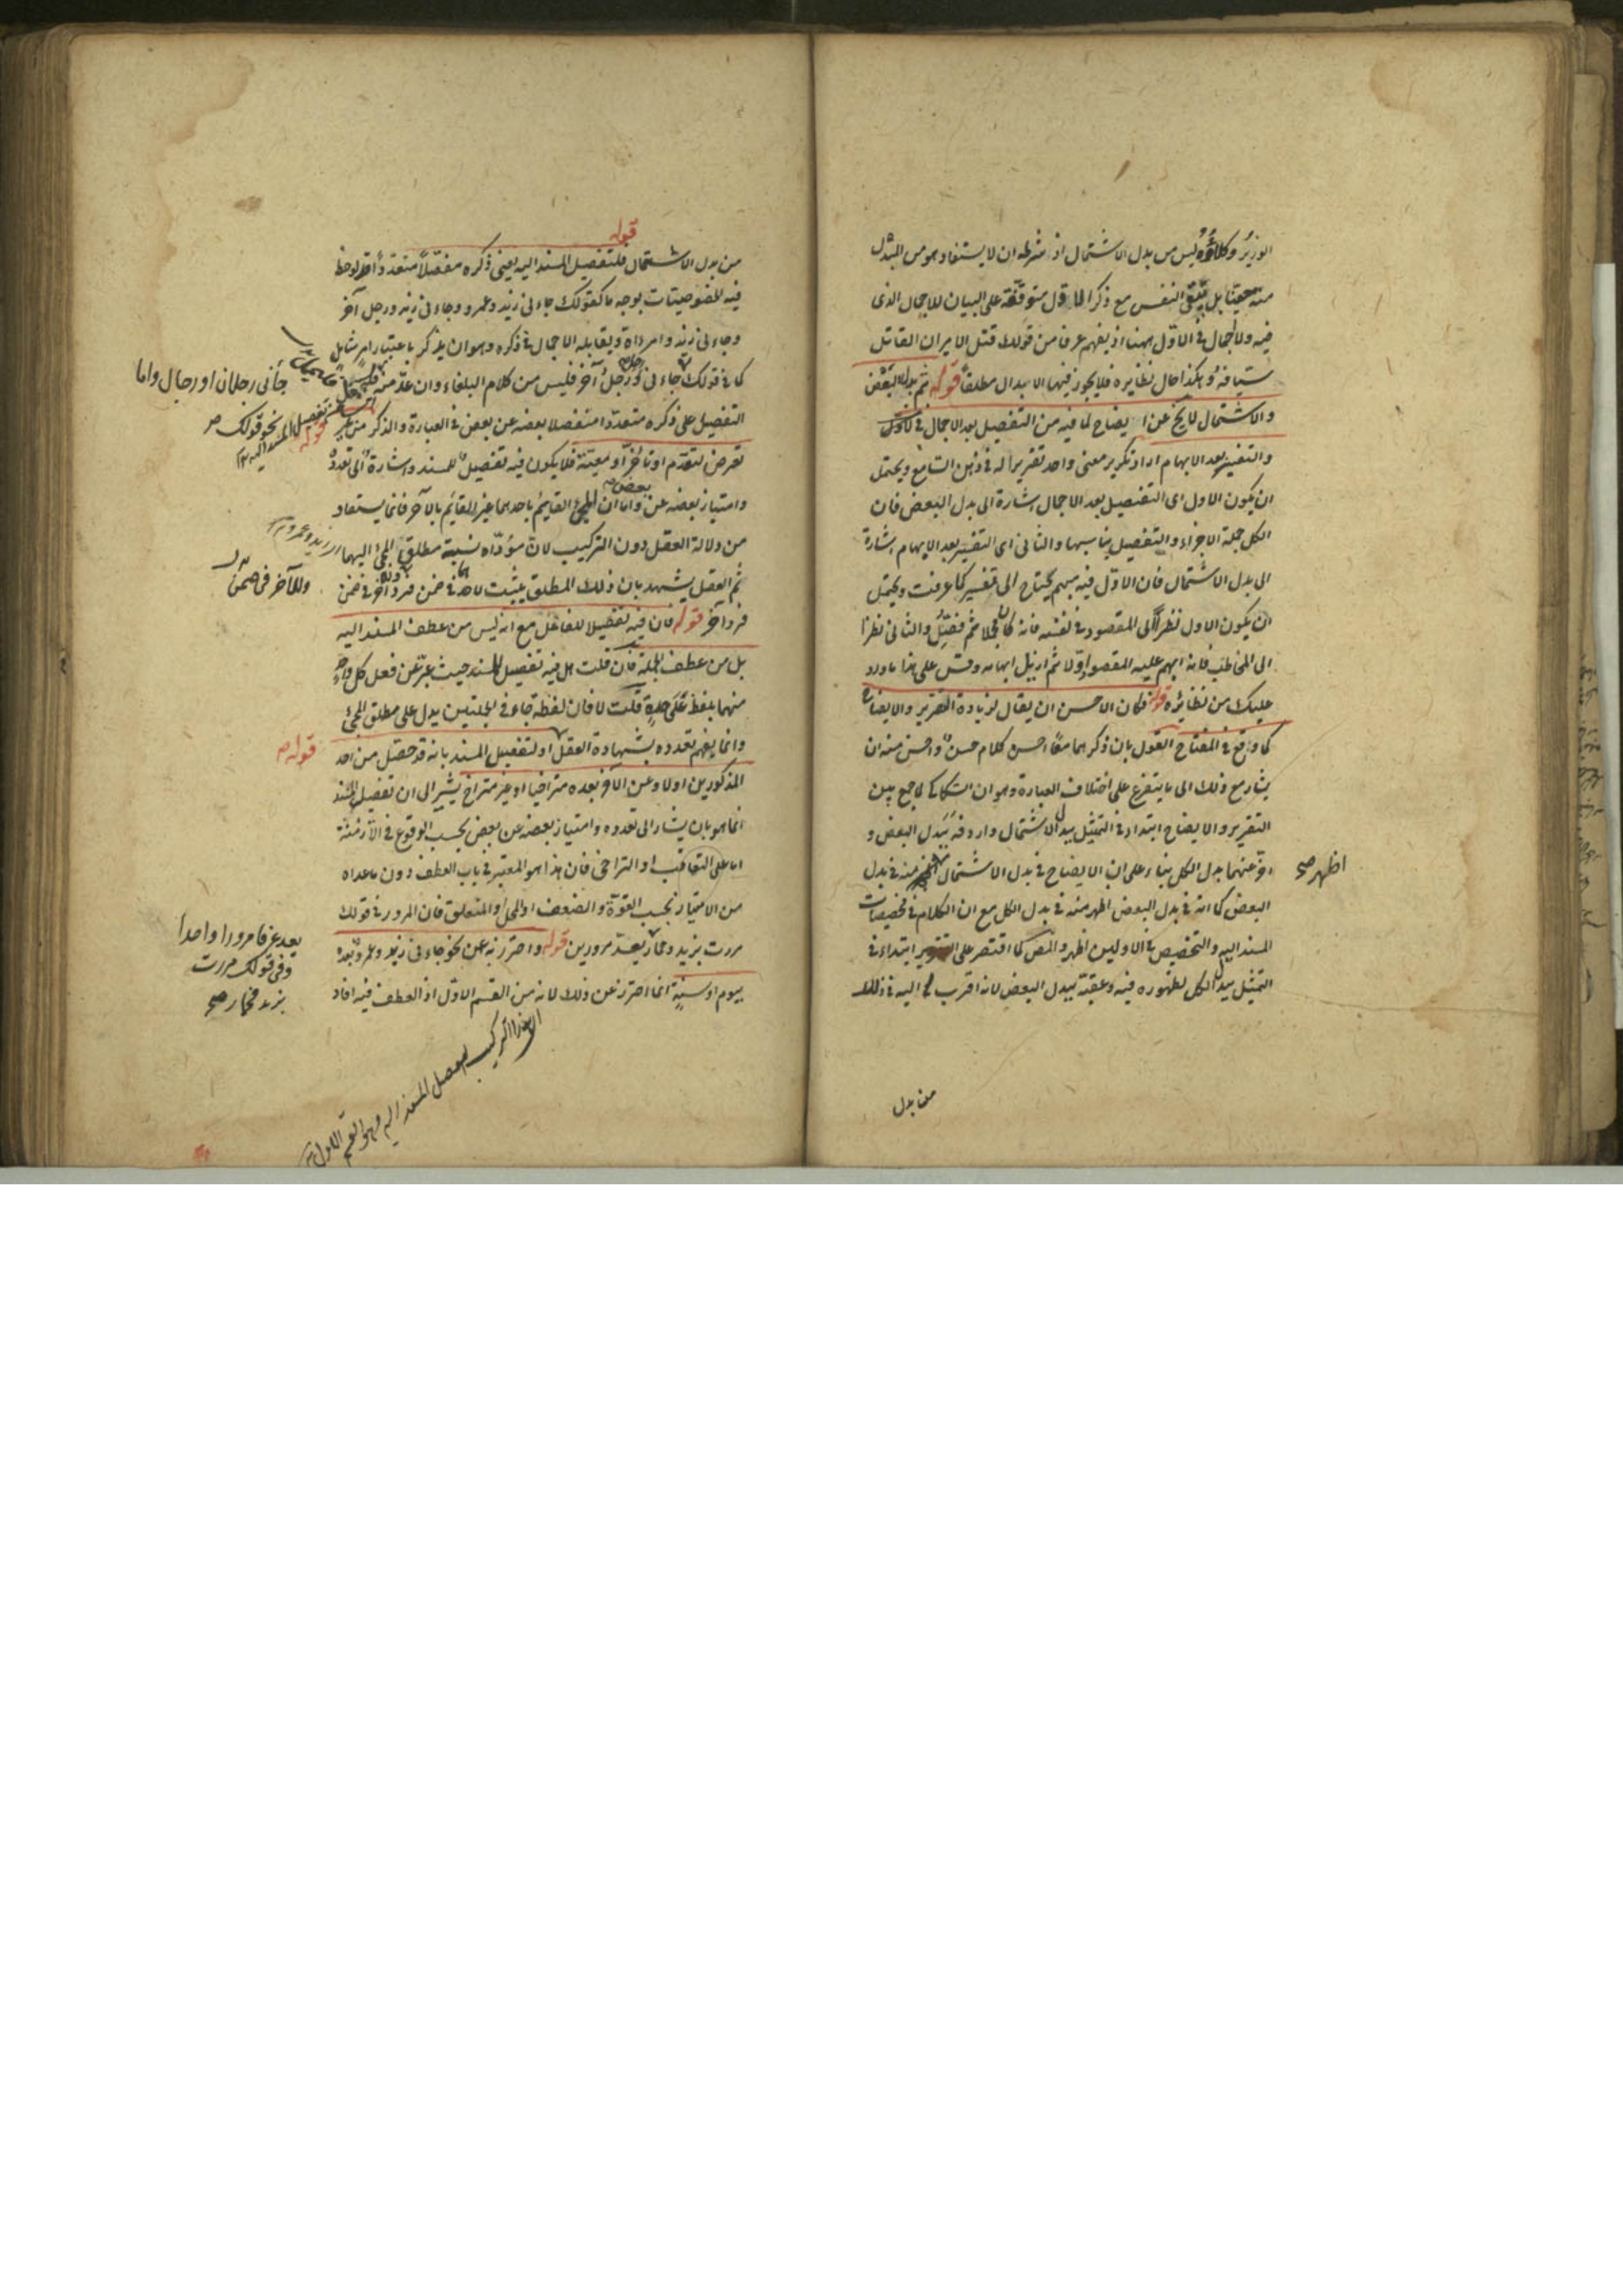 الوزير وكلاؤه ليس من بدل الاشتمال اذ شرطه ان لا يستفاد هو من المبدل
منه معينا بل يبقى النفس مع ذكر الاول متوقفة على البيان للاجمال الذى
فيه ولا اجمال فى الاول ههنا اذ يفهم عرفا من قولك قتل الامير ان القاتل
سيافه وهكذا حال نظايره فلا يجوز فيها الابدال مطلقا قوله ثم بدل البعض
والاشتمال لا يخ عن ايضاح لما فيه من التفصيل بعد الاجمال فى الاول
والتفسير بعد الابهام اراد تكرير معنى واحد تقريرا له فى ذهن السامع ويحتمل
ان يكون الاول اى التفصيل بعد الاجمال اشارة الى بدل البعض فان
الكل جملة الاجزاء والتفصيل يناسبها والثانى اى التفسير بعد الابهام اشارة
الى بدل الاشتمال فان الاول فيه مبهم يحتاج الى تفسير كما عرفت ويحتمل
ان يكون الاول نظرا الى المقصود فى نفسه فانه كان مجملا ثم فصل والثانى نظرا
الى المخاطب فانه ابهم عليه المقصود اولا ثم ازيل ابهامه وقس على هذا ما ورد
عليك من نظائره قوله فكان الاحسن ان يقال لزيادة التقرير والايضاح
كما وقع فى المفتاح القول بان ذكرهما معا احسن كلام حسن واحسن منه ان
يشار مع ذلك الى ما يتفرع على اختلاف العبارة وهو ان السكاكى لما جمع بين
التقرير والايضاح ابتداء فى التمثيل ببدل الاشتمال واردفه ببدل البعض و
اخر عنهما بدل الكل بناء على ان الايضاح فى بدل الاشتمال اظهر منه فى بدل
اظهر صح
البعض كما انه فى بدل البعض اظهر منه فى بدل الكل مع ان الكلام فى تخصيصات
المسند اليه والتخصيص فى الاولين اظهر والمص لما اقتصر على التقرير ابتداء فى
التمثيل ببدل الكل لظهوره فيه وعقبه ببدل البعض لانه اقرب اليه فى ذلك
من بدل
قوله
من بدل الاشتمال فلتفصيل المسند اليه يعنى ذكره مفصلا متعددا قد لوحظ
فيه الخصوصيات بوجه ما كقولك جاءنى زيد وعمرو وجاءنى زيد ورجل آخر
وجاءنى زيد وامرءاة ويقابله الاجمال فى ذكره وهو ان يذكر باعتبار امر شامل
جأنى رجلان او رجال واما
كما فى قولك جاءنى رجل ورجل آخر فليس من كلام البلغاء وان عد منه
نحو قولك صح
التفصيل على ذكره متعددا منفصلا بعضه عن بعض فى العبارة والذكر من غير
قوله
تعرض لتقدم او تأخر او معية فلا يكون فيه تفصيل للمسند واشارة الى تعدده
وامتياز بعضه عن بعض واما ان المجئ القايم باحدهما غير القايم بالآخر فانما يستفاد
من دلالة العقل دون التركيب لان مؤداه نسبة مطلق المجئ اليهما
اى زيد وعمرو
ثم العقل يشهد بان ذلك المطلق يثبت لاحدهما فى ضمن فرد وللآخر فى ضمن
وللآخر فى ضمن
فرد آخر قوله فان فيه تفصيلا للفاعل مع انه ليس من عطف المسند اليه
بل من عطف الجملة فان قلت هل فيه تفصيل للمسند حيث عبر عن فعل كل واحد
منهما بلفظ على حدة قلت لا فان لفظة جاء فى الجملتين يدل على مطلق المجئ
وانما يفهم تعدده بشهادة العقل او لتفصيل المسند بانه قد حصل من احد
قوله
المذكورين اولا وعن الآخر بعده متراخيا او غير متراخ يشير الى ان تفصيل المسند
انما هو بان يشار الى تعدده وامتياز بعضه عن بعض بحسب الوقوع فى الازمنة
اما على التعاقب او التراخى فان هذا هو المعتبر فى باب العطف دون ما عداه
من الامتياز بحسب القوة والضعف او المحل او المتعلق فان المرور فى قولك
يعد عرفا مرورا واحدا
وفى قولك مررت
بزيد فحمار صح
مررت بزيد وحمار يعد مرورين قوله واحترز به عن نحو جاءنى زيد وعمرو بعده
بيوم او سنة انما احترز عن ذلك لانه من القسم الاول اذ العطف فيه افاد
التركيب تفصل المسند اليه وهو القسم الاول